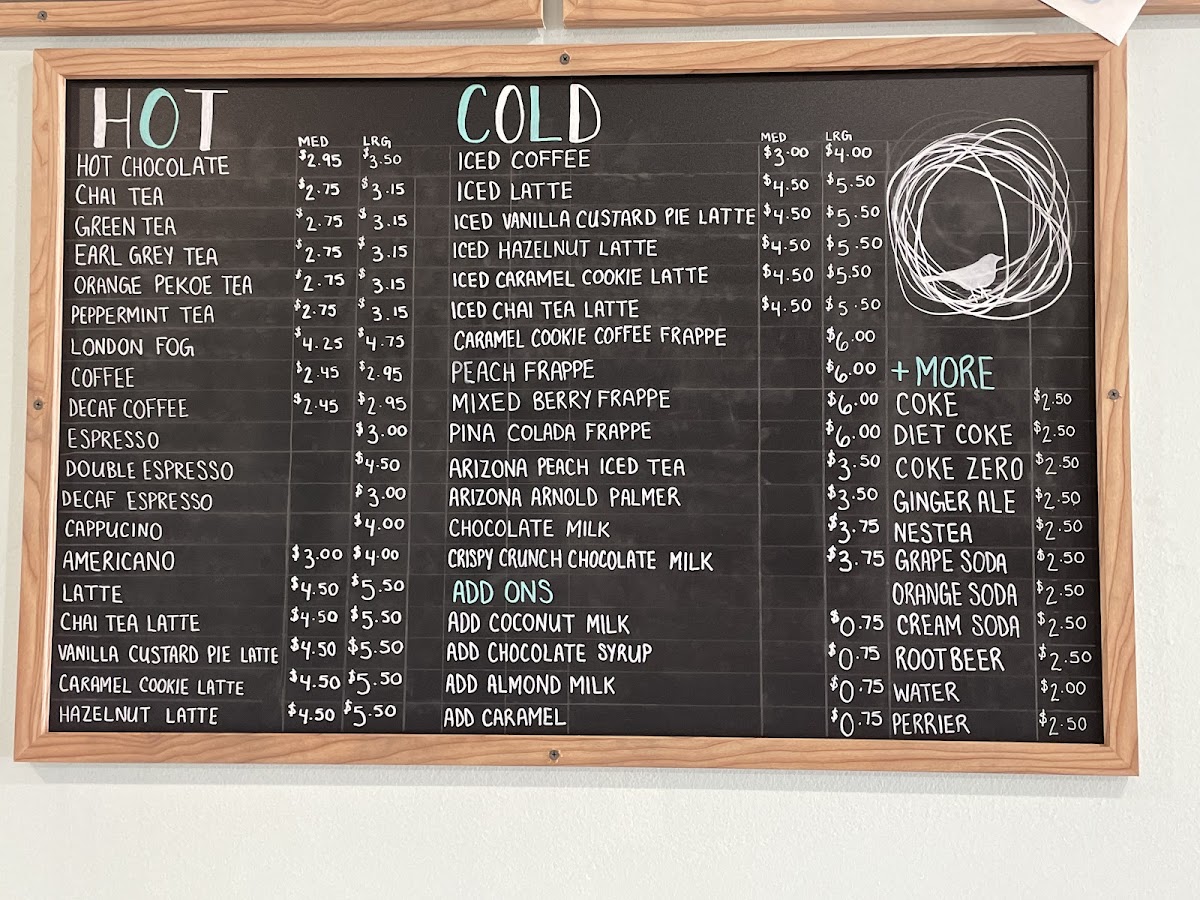 HOT
MED LRG
HOT CHOCOLATE $2.95 $3.50
CHAI TEA $2.75 $3.15
GREEN TEA $2.75 $3.15
EARL GREY TEA $2.75 $3.15
ORANGE PEKOE TEA $2.75 $3.15
PEPPERMINT TEA $2.75 $3.15
LONDON FOG $4.25 $4.75
COFFEE $2.45 $2.95
DECAF COFFEE $2.45 $2.95
ESPRESSO $3.00
DOUBLE ESPRESSO $4.50
DECAF ESPRESSO $3.00
CAPPUCINO $4.00
AMERICANO $3.00 $4.00
LATTE $4.50 $5.50
CHAI TEA LATTE $4.50 $5.50
VANILLA CUSTARD PIE LATTE $4.50 $5.50
CARAMEL COOKIE LATTE $4.50 $5.50
HAZELNUT LATTE $4.50 $5.50
COLD
MED LRG
ICED COFFEE $3.00 $4.00
ICED LATTE $4.50 $5.50
ICED VANILLA CUSTARD PIE LATTE $4.50 $5.50
ICED HAZELNUT LATTE $4.50 $5.50
ICED CARAMEL COOKIE LATTE $4.50 $5.50
ICED CHAI TEA LATTE $4.50 $5.50
CARAMEL COOKIE COFFEE FRAPPE $6.00
PEACH FRAPPE $6.00
MIXED BERRY FRAPPE $6.00
PINA COLADA FRAPPE $6.00
ARIZONA PEACH ICED TEA $3.50
ARIZONA ARNOLD PALMER $3.50
CHOCOLATE MILK $3.75
CRISPY CRUNCH CHOCOLATE MILK $3.75
ADD ONS
ADD COCONUT MILK $0.75
ADD CHOCOLATE SYRUP $0.75
ADD ALMOND MILK $0.75
ADD CARAMEL $0.75
+ MORE
COKE $2.50
DIET COKE $2.50
COKE ZERO $2.50
GINGER ALE $2.50
NESTEA $2.50
GRAPE SODA $2.50
ORANGE SODA $2.50
CREAM SODA $2.50
ROOTBEER $2.50
WATER $2.00
PERRIER $2.50